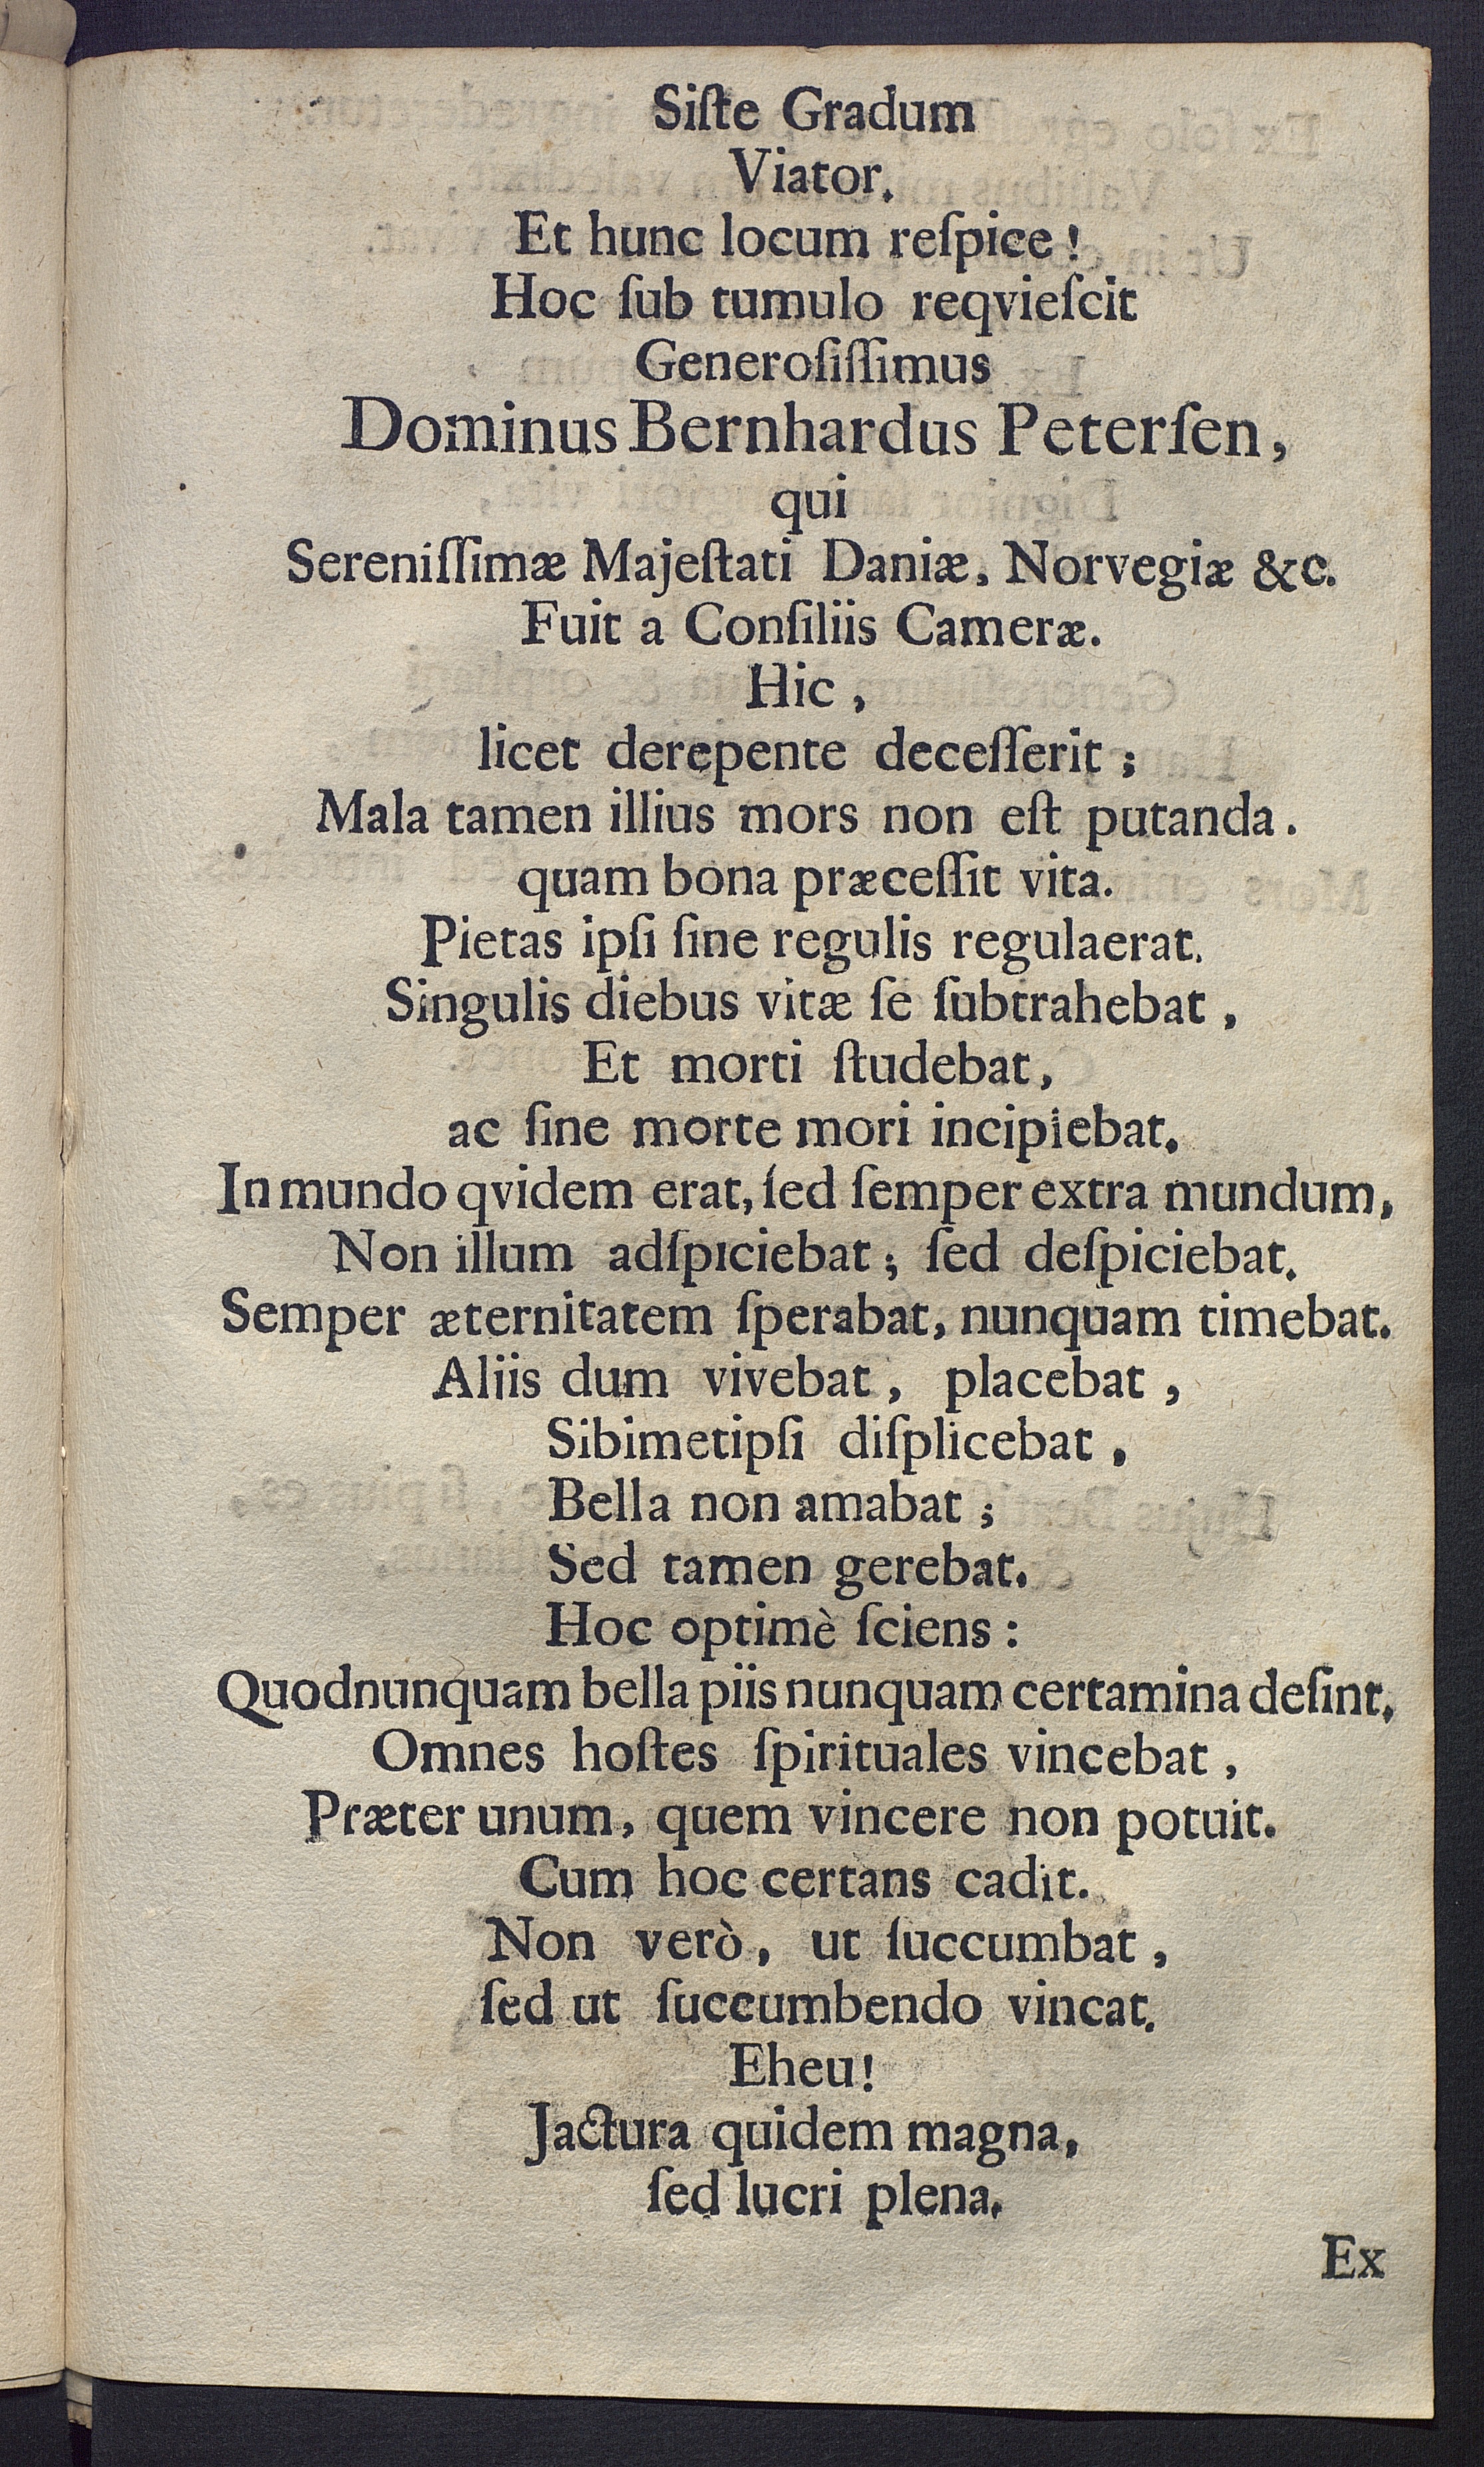 Siſte Gradum
Viator.
Et hunc locum reſpice!
Hoc ſub tumulo reqvieſcit
Generoſiſſimus
Dominus Bernhardus Peterſen,
qui
Sereniſſimæ Majeſtati Daniæ, Norvegiæ &c.
Fuit a Conſiliis Cameræ.
Hic,
licet derepente deceſſerit;
Mala tamen illius mors non eſt putanda.
quam bona præceſſit vita.
Pietas ipſi ſine regulis regulaerat.
Singulis diebus vitæ ſe ſubtrahebat,
Et morti ſtudebat,
ac ſine morte mori incipiebat.
In mundo qvidem erat, ſed ſemper extra mundum,
Non illum adſpiciebat; ſed deſpiciebat.
Semper æternitatem ſperabat, nunquam timebat.
Aliis dum vivebat, placebat,
Sibimetipſi diſplicebat,
Bella non amabat;
Sed tamen gerebat.
Hoc optimè ſciens:
Quodnunquam bella piis nunquam certamina deſint,
Omnes hoſtes ſpirituales vincebat,
Præter unum, quem vincere non potuit.
Cum hoc certans cadit.
Non verò, ut ſuccumbat,
ſed ut ſuccumbendo vincat.
Eheu!
Jactura quidem magna,
ſed lucri plena.
Ex